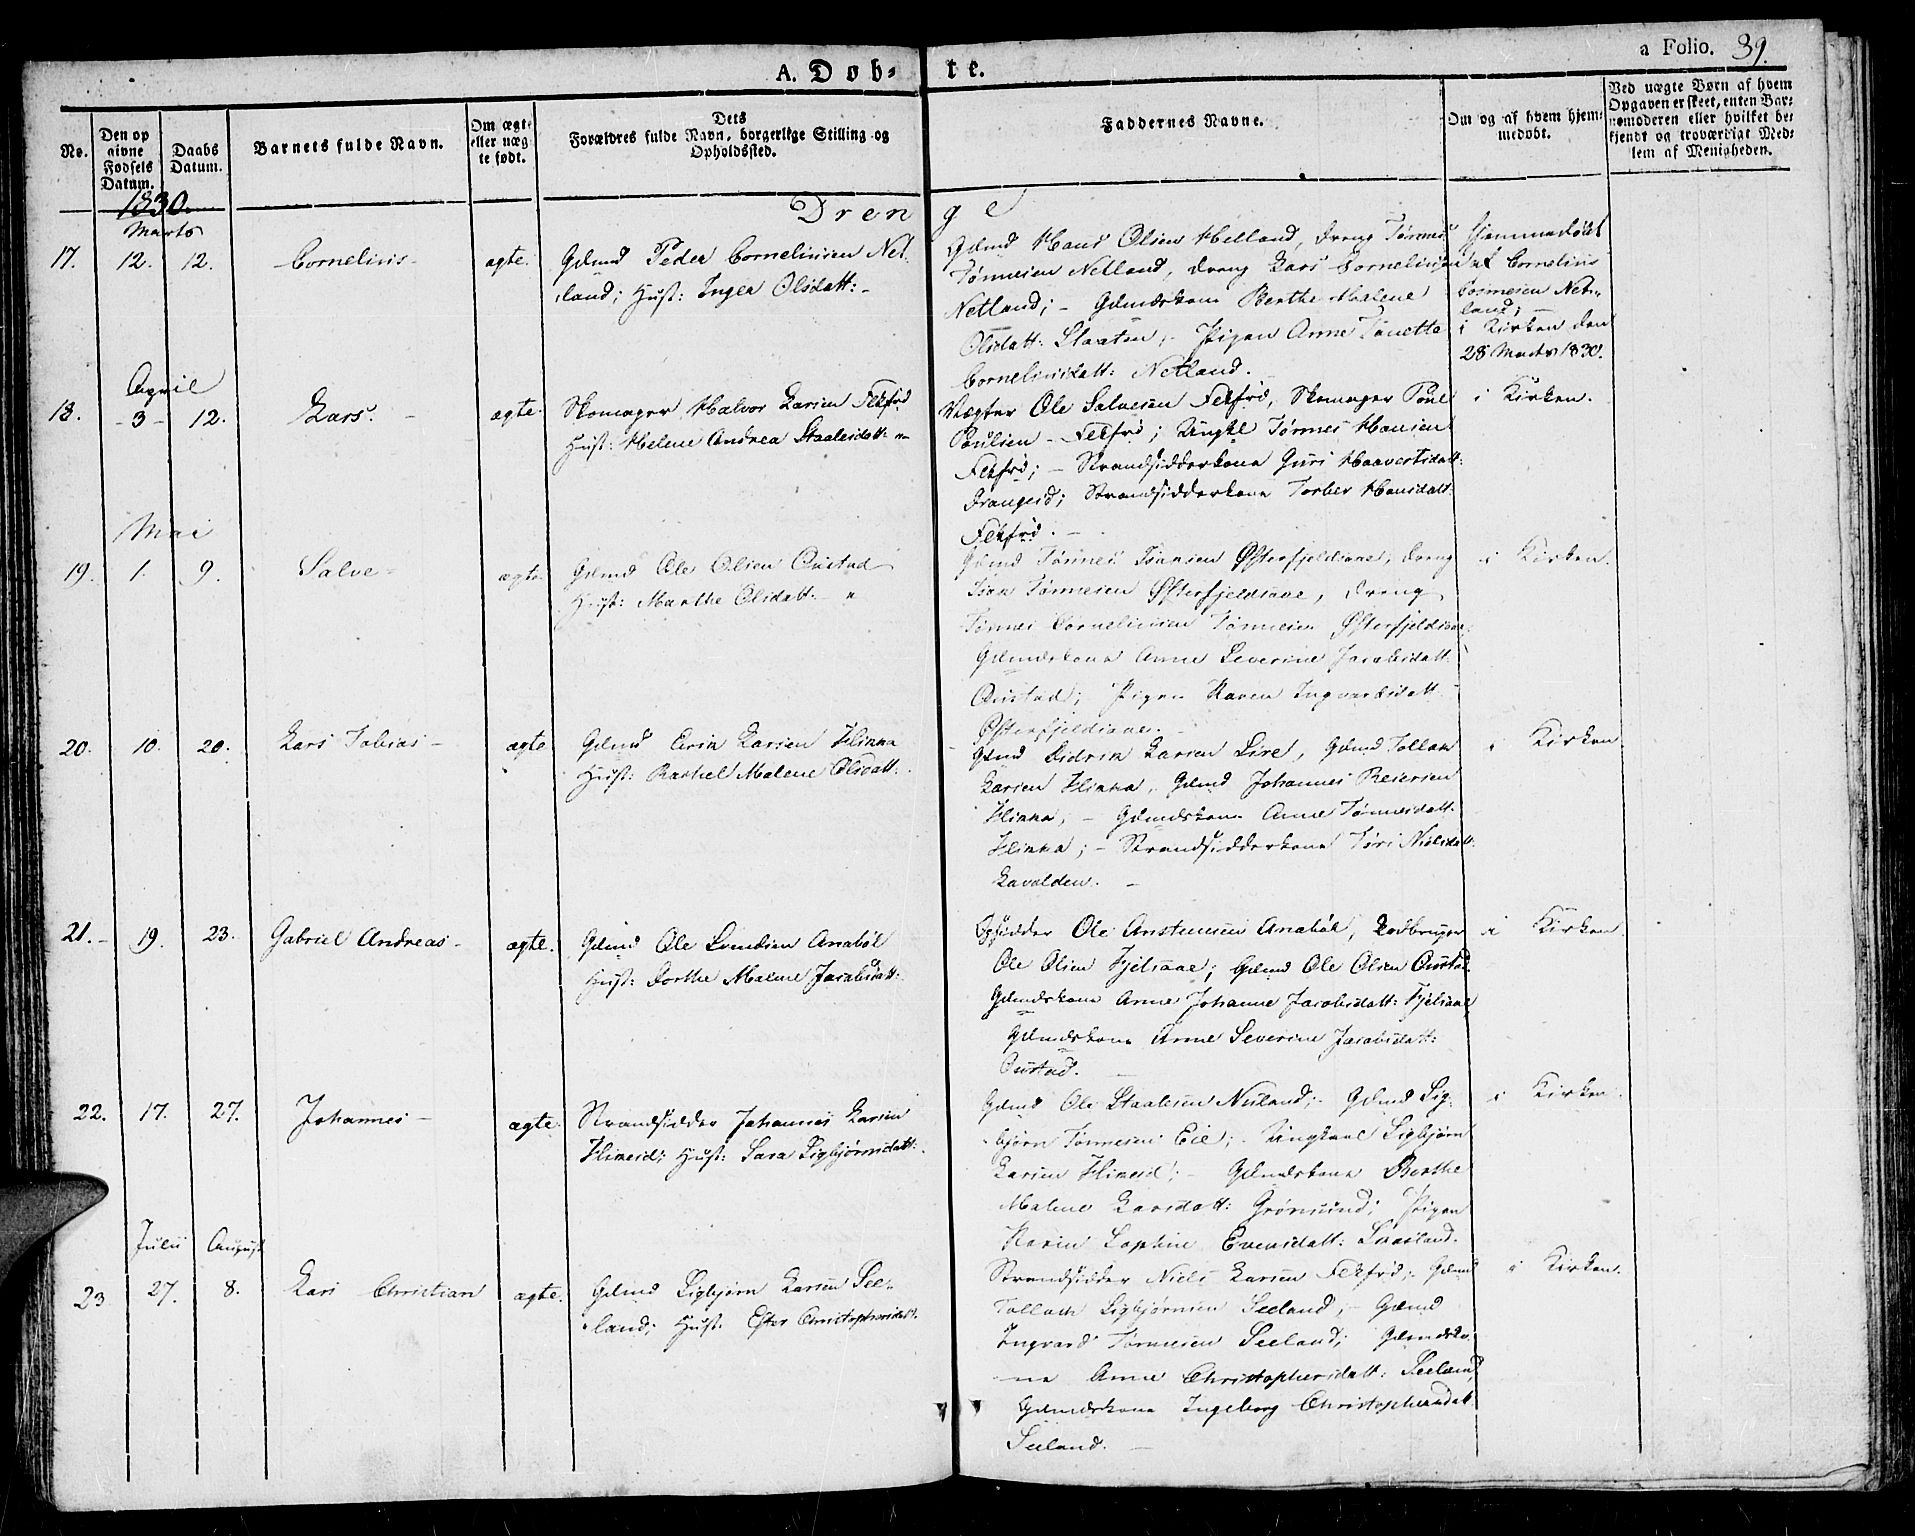 A. Døb-
te.
a Folio. 39.
No.
Den op
givne
Fødsels
Datum.
Daabs
Datum.
Barnets fulde Navn.
Om ægte
eller uæg
te født.
Dets
Forældres fulde Navn, borgerlige Stilling og
Opholdssted.
Faddernes Navne.
Om og af hvem hjem-
medøbt.
Ved uægte Børn af hvem
Opgaven er skeet, enten Bar-
nemoderen eller hvilket be-
kjendt og troværdigt Med-
lem af Menigheden.
1830.
Drenge
Marts
17. 12. 12. Cornelius- ægte. Gdmd Peder Corneliusen Net-
land; Hust: Inger Olsdatt:-
Gdmd Hans Olsen Helland, dreng Tønnes
Tønnesen Netland, dreng Lars Corneliusen
Netland;- Gdmdskone Berthe Malene
Olsdatt: Staaten; Pigen Anne Tonette
Corneliusdatt: Netland.
Hjemmedøbt
af Cornelius
Netland;
i Kirken den
28 Marts 1830.
April
18. -3- 12. Lars.- ægte. Skomager Halvor Larsen Fekfrd
Hust: Helene Andrea Staalesdatt:
Vægter Ole Salvesen Fekfrd, Skomager Poul
Poulsen Fekfrd; Ungkl Tønnes Hansen
Fekfrd;- Strandsidderkone Guri Haavortsdatt:
Drangeid; Strandsidderkone Torber Hansdatt:
Fekfrd.-
i Kirken.
Mai
19. 1. 9. Salve- ægte. Gdmd Ole Olsen Oustad
Hust: Marthe Olsdatt.
Gdmd Tønnes Hansen Østerfjeldsaae, dreng
Tønnesen Østerfjeldsaae, dreng
Tønnes Corneliusen Tønnesen Østerfjeldsaae,
Gdmdskone Anne Severine Jacobsdatt:
Oustad; Pigen Karen Ingvardsdatt
Østerfjeldsaae.-
i Kirken.
20. 10. 20. Lars Tobias- ægte Gdmd Larsen Hinna
Hust: Rachel Malene Olsdatt:
Gdmd Didrik Larsen Lire, Gdmd Tollak
Larsen Hinna, Gdmd Johannes Reiersen
Hinna;- Gdmdskone Anne Tønnesdatt:
Hinna;- Strandsidderkone Tøri Nielsdatt:
Lavolden.-
i Kirken.
21.- 19. 23. Gabriel Andreas- ægte. Gdmd Ole Svendsen Anabøl
Hust: Dorthe Malene Jacobsdatt:
Opsidder Ole Anstensen Anabøl, Ledbruger
Ole Olsen Fjelsaae; Gdmd Ole Olsen Oustad.
Gdmdskone Anne Johanne Jacobsdatt: Fjelsaae
Gdmdskone Anne Severine Jacobsdatt:
Oustad.
i Kirken.
22. 17. 27. Johannes- ægte. Strandsidder Johannes Larsen
Hust: Sara Sigbjørnsdatt:
Gdmd Ole Staalesen Nuland;- Gdmd Sig-
bjørn Tønnesen Eie; Ungkarl Sigbjørn
Larsen;- Gdmdskone Berthe
Malene Larsdatt: Grønsund; Pigen
Karen Sophie Evensdatt: Svasland.
i Kirken.
Julii August
23 27. 8. Lars Christian ægte. Gdmd Sigbjørn Larsen See-
land; Hust: Ester Christophersdatt:
Strandsidder Niels Larsen Fekfrd;- Gdmd
Tollach Sigbjørnsen Seeland;- Gdmd
Ingvard Tønnesen Seeland; Gdmdsko-
ne Anne Christophersdatt: Seeland,
Gdmdskone Ingeborg Christophersdatt
Seeland.-
i Kirken.